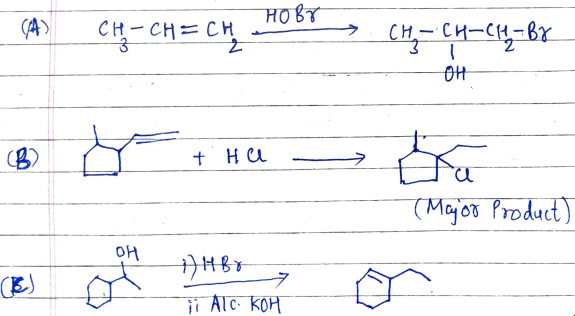 (A) CH3-CH=CH2 HOBr CH3-CH-CH2-Br
OH
(B) + HCl Cl
(Major Product)
(C) OH i) HBr
ii Alc. KOH